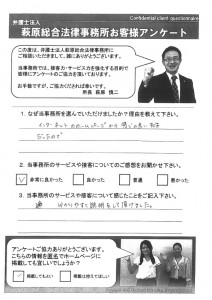 Confidential client questionnaire
弁護士法人
萩原総合法律事務所お客様アンケート
この度は、弁護士法人萩原総合法律事務所に
ご相談いただきまして、誠にありがとうございます。
当事務所では、接客力・サービス力を強化する目的で
皆様にアンケートのご協力を頂いております。
お手数ですが、ご協力くださいませ。
所長 萩原 慎二
1. なぜ当事務所を選んでいただけましたか?理由を教えて下さい。
インターネットのホームページから
だったので
2. 当事務所のサービスや接客についてのご感想をお聞かせ下さい。
非常に良かった 良かった 普通 悪かった
3. 当事務所のサービスや接客について感じたことをご記入下さい。
わかりやすく説明をして頂けました。
アンケートご協力ありがとうございます。
こちらの情報を匿名でホームページに
掲載しても宜しいでしょうか?
掲載してもよい 掲載は控えてほしい